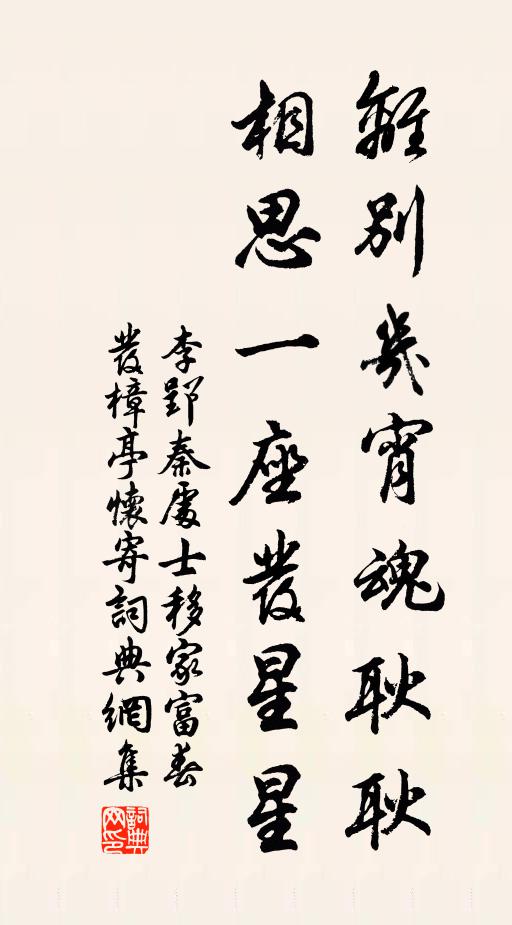 離別幾宵魂耿耿
相思一座發星星
李郢秦處士移家富春
發樟亭懷寄詞典網集
詞典網印